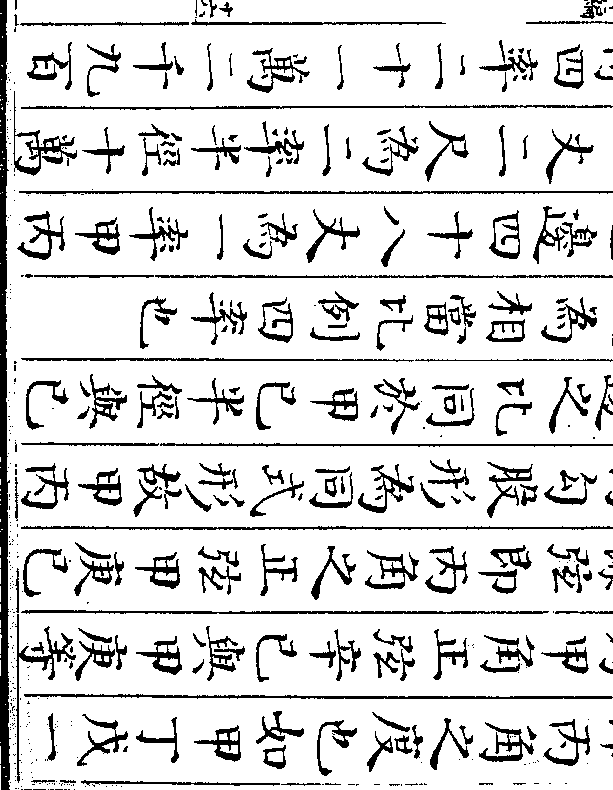 丙角之度也如甲丁戊一
甲角正弦辛己與甲庚等
弦即丙角之正弦甲庚己
勾股形為同式形故甲丙
之比同於甲己半徑與己
為相當比例四率也
邊四十八丈為一率甲丙
丈二尺為二率半徑十萬
四率二十一萬二千九百